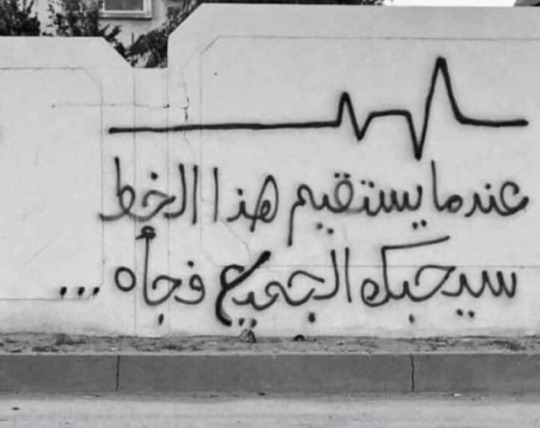 عندما يستقيم هذا الخط
سيحبك الجميع فجأه ...